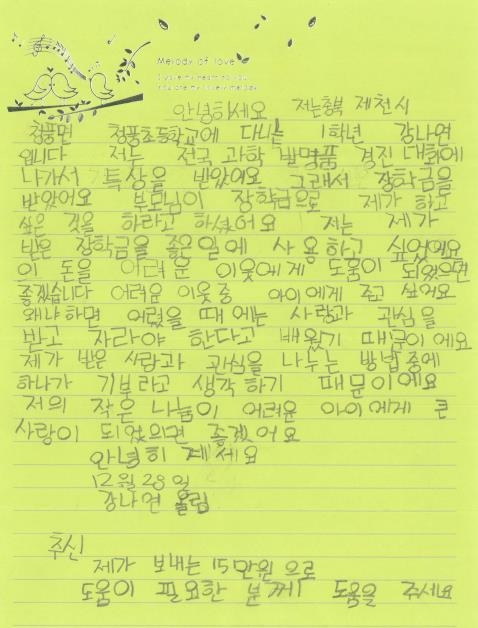 Melody of love
I give my heart to you
You are my lovely melody
안녕하세요 저는충북 제천시
청풍면 청풍초등학교에 다니는 1학년 강나연
입니다 저는 전국 과학 발명품 경진 대회에
나가서 특상을 받았어요 그래서 장학금을
받았어요 부모님이 장학금으로 제가 하고
싶은 것을 하라고 하셨어요 저는 제가
받은 장학금을 좋은일에 사용하기 싶었어요
이 돈을 어려운 이웃에게 도움이 되었으면
좋겠습니다 어려운 이웃중 아이에게 주고 싶어요
왜냐하면 어렸을 때에는 사랑과 관심을
받고 자라야 한다고 배웠기 때문이에요
제가 받은 사랑과 관심을 나누는 방법중에
하나가 기부라고 생각하기 때문이에요
저의 작은 나눔이 어려운 아이에게 큰
사랑이 되었으면 좋겠어요
안녕히 계세요
12월 28일
강나연 올림
추신
제가 보내는 15만원으로
도움이 필요한 분께 도움을 주세요